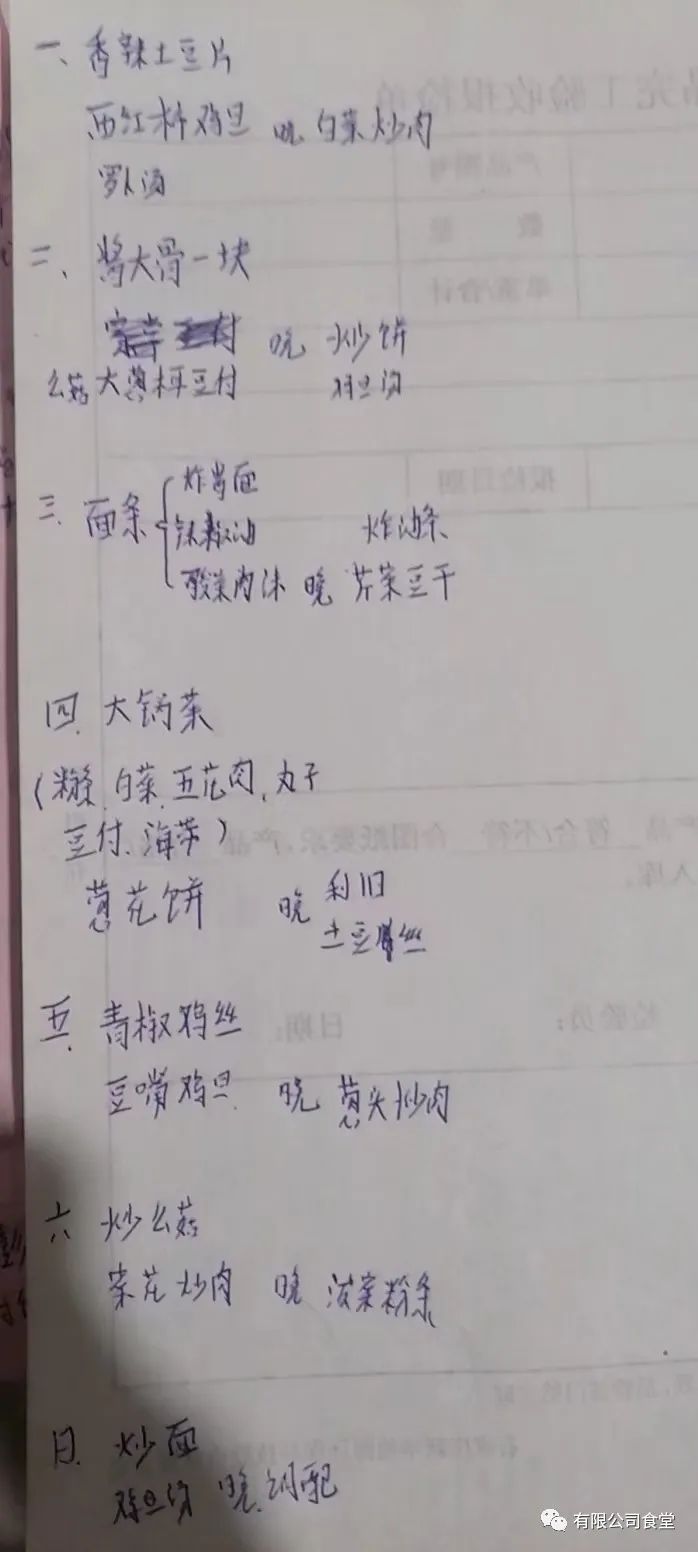 一、香辣土豆片
西红柿鸡旦 晚 白菜炒肉
二、酱大骨一块
晚 炒饼
么菇大葱木耳豆付 鸡旦汤
三、面条 炸酱面
炸油条
酸菜肉沫 晚 芹菜豆干
四、大锅菜
(粉条、白菜、五花肉、丸子
豆付、海带)
葱花饼 晚 利旧
土豆丝
五、青椒鸡丝
豆嘴鸡旦 晚 葱头炒肉
六 炒么菇
菜花炒肉 晚 粉条
日、炒面
鸡旦汤 晚
产品图号
数 量
单重/合计
报检日期
检验员： 日期：
有限公司食堂